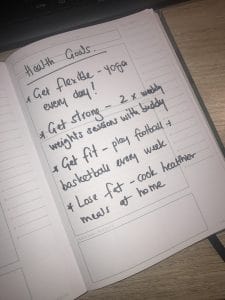 Health Goals
* Get flexible - yoga
every day!
* Get strong - 2 x weekly
weights sessions with buddy
* Get fit - play football +
basketball every week
* Lose fat - cook healthier
meals at home